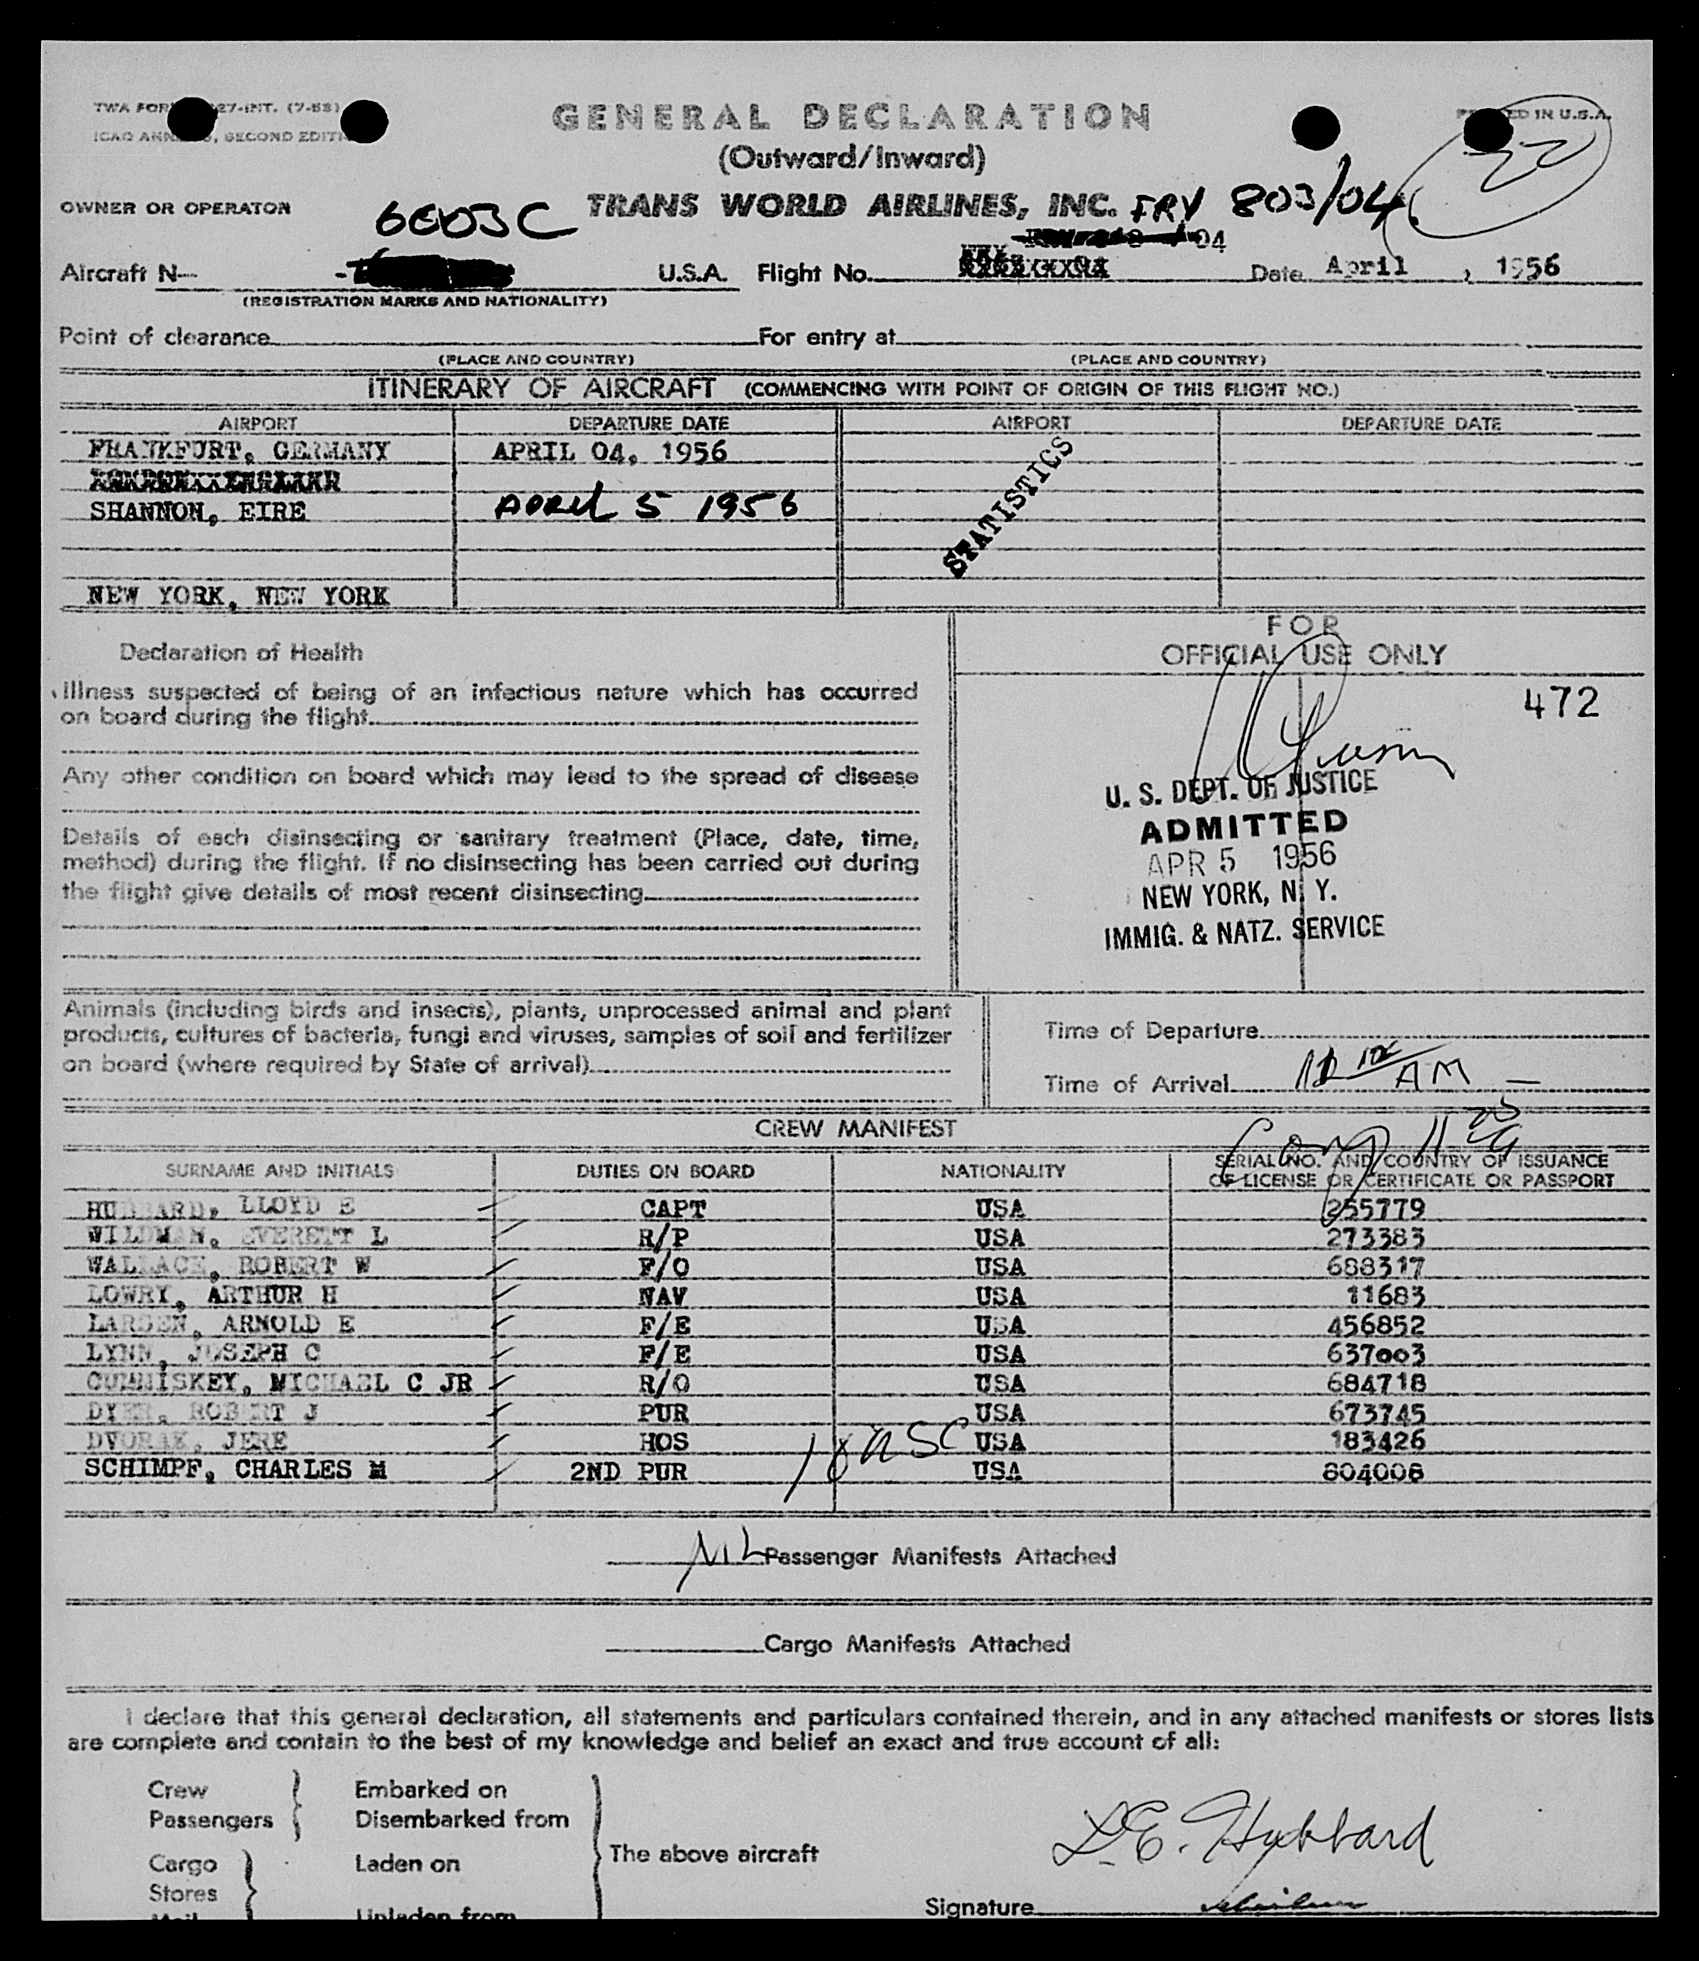 TWA FOR 27-INT. (7-53)
ICAO ANN , SECOND EDITI
GENERAL DECLARATION
PRINTED IN U.S.A.
(Outward/Inward)
22
OWNER OR OPERATOR
TRANS WORLD AIRLINES, INC. FRY 803/04
6003C
04
Aircraft N— U.S.A. Flight No. Date April , 1956
(REGISTRATION MARKS AND NATIONALITY)
Point of clearance For entry at
(PLACE AND COUNTRY) (PLACE AND COUNTRY)
ITINERARY OF AIRCRAFT (COMMENCING WITH POINT OF ORIGIN OF THIS FLIGHT NO.)
AIRPORT DEPARTURE DATE AIRPORT DEPARTURE DATE
FRANKFURT, GERMANY APRIL 04, 1956
SHANNON, EIRE APRIL 5 1956
STATISTICS
NEW YORK, NEW YORK
Declaration of Health
Illness suspected of being of an infectious nature which has occurred
on board during the flight
Any other condition on board which may lead to the spread of disease
Details of each disinsecting or sanitary treatment (Place, date, time,
method) during the flight. If no disinsecting has been carried out during
the flight give details of most recent disinsecting
FOR
OFFICIAL USE ONLY
472
U. S. DEPT. OF JUSTICE
ADMITTED
APR 5 1956
NEW YORK, N. Y.
IMMIG. & NATZ. SERVICE
Animals (including birds and insects), plants, unprocessed animal and plant
products, cultures of bacteria, fungi and viruses, samples of soil and fertilizer
on board (where required by State of arrival)
Time of Departure
Time of Arrival AM —
CREW MANIFEST
SURNAME AND INITIALS DUTIES ON BOARD NATIONALITY SERIAL NO. AND COUNTRY OF ISSUANCE
OF LICENSE OR CERTIFICATE OR PASSPORT
HUBBARD, LLOYD E CAPT USA 255779
WILDMAN, EVERETT L R/P USA 273383
WALLACE, ROBERT W F/O USA 688317
LOWRY, ARTHUR H NAV USA 11683
LARSEN, ARNOLD E F/E USA 456852
LYNN, JOSEPH C F/E USA 637003
CUMMISKEY, MICHAEL C JR R/O USA 684718
DYER, ROBERT J PUR USA 673745
DVORAK, JERE HOS USA 183426
SCHIMPF, CHARLES M 2ND PUR USA 804008
10 USC
NIL Passenger Manifests Attached
Cargo Manifests Attached
I declare that this general declaration, all statements and particulars contained therein, and in any attached manifests or stores lists
are complete and contain to the best of my knowledge and belief an exact and true account of all:
Crew Embarked on
Passengers Disembarked from
The above aircraft
Cargo Laden on
Stores
Mail Unladen from
L.E. Hubbard
Signature